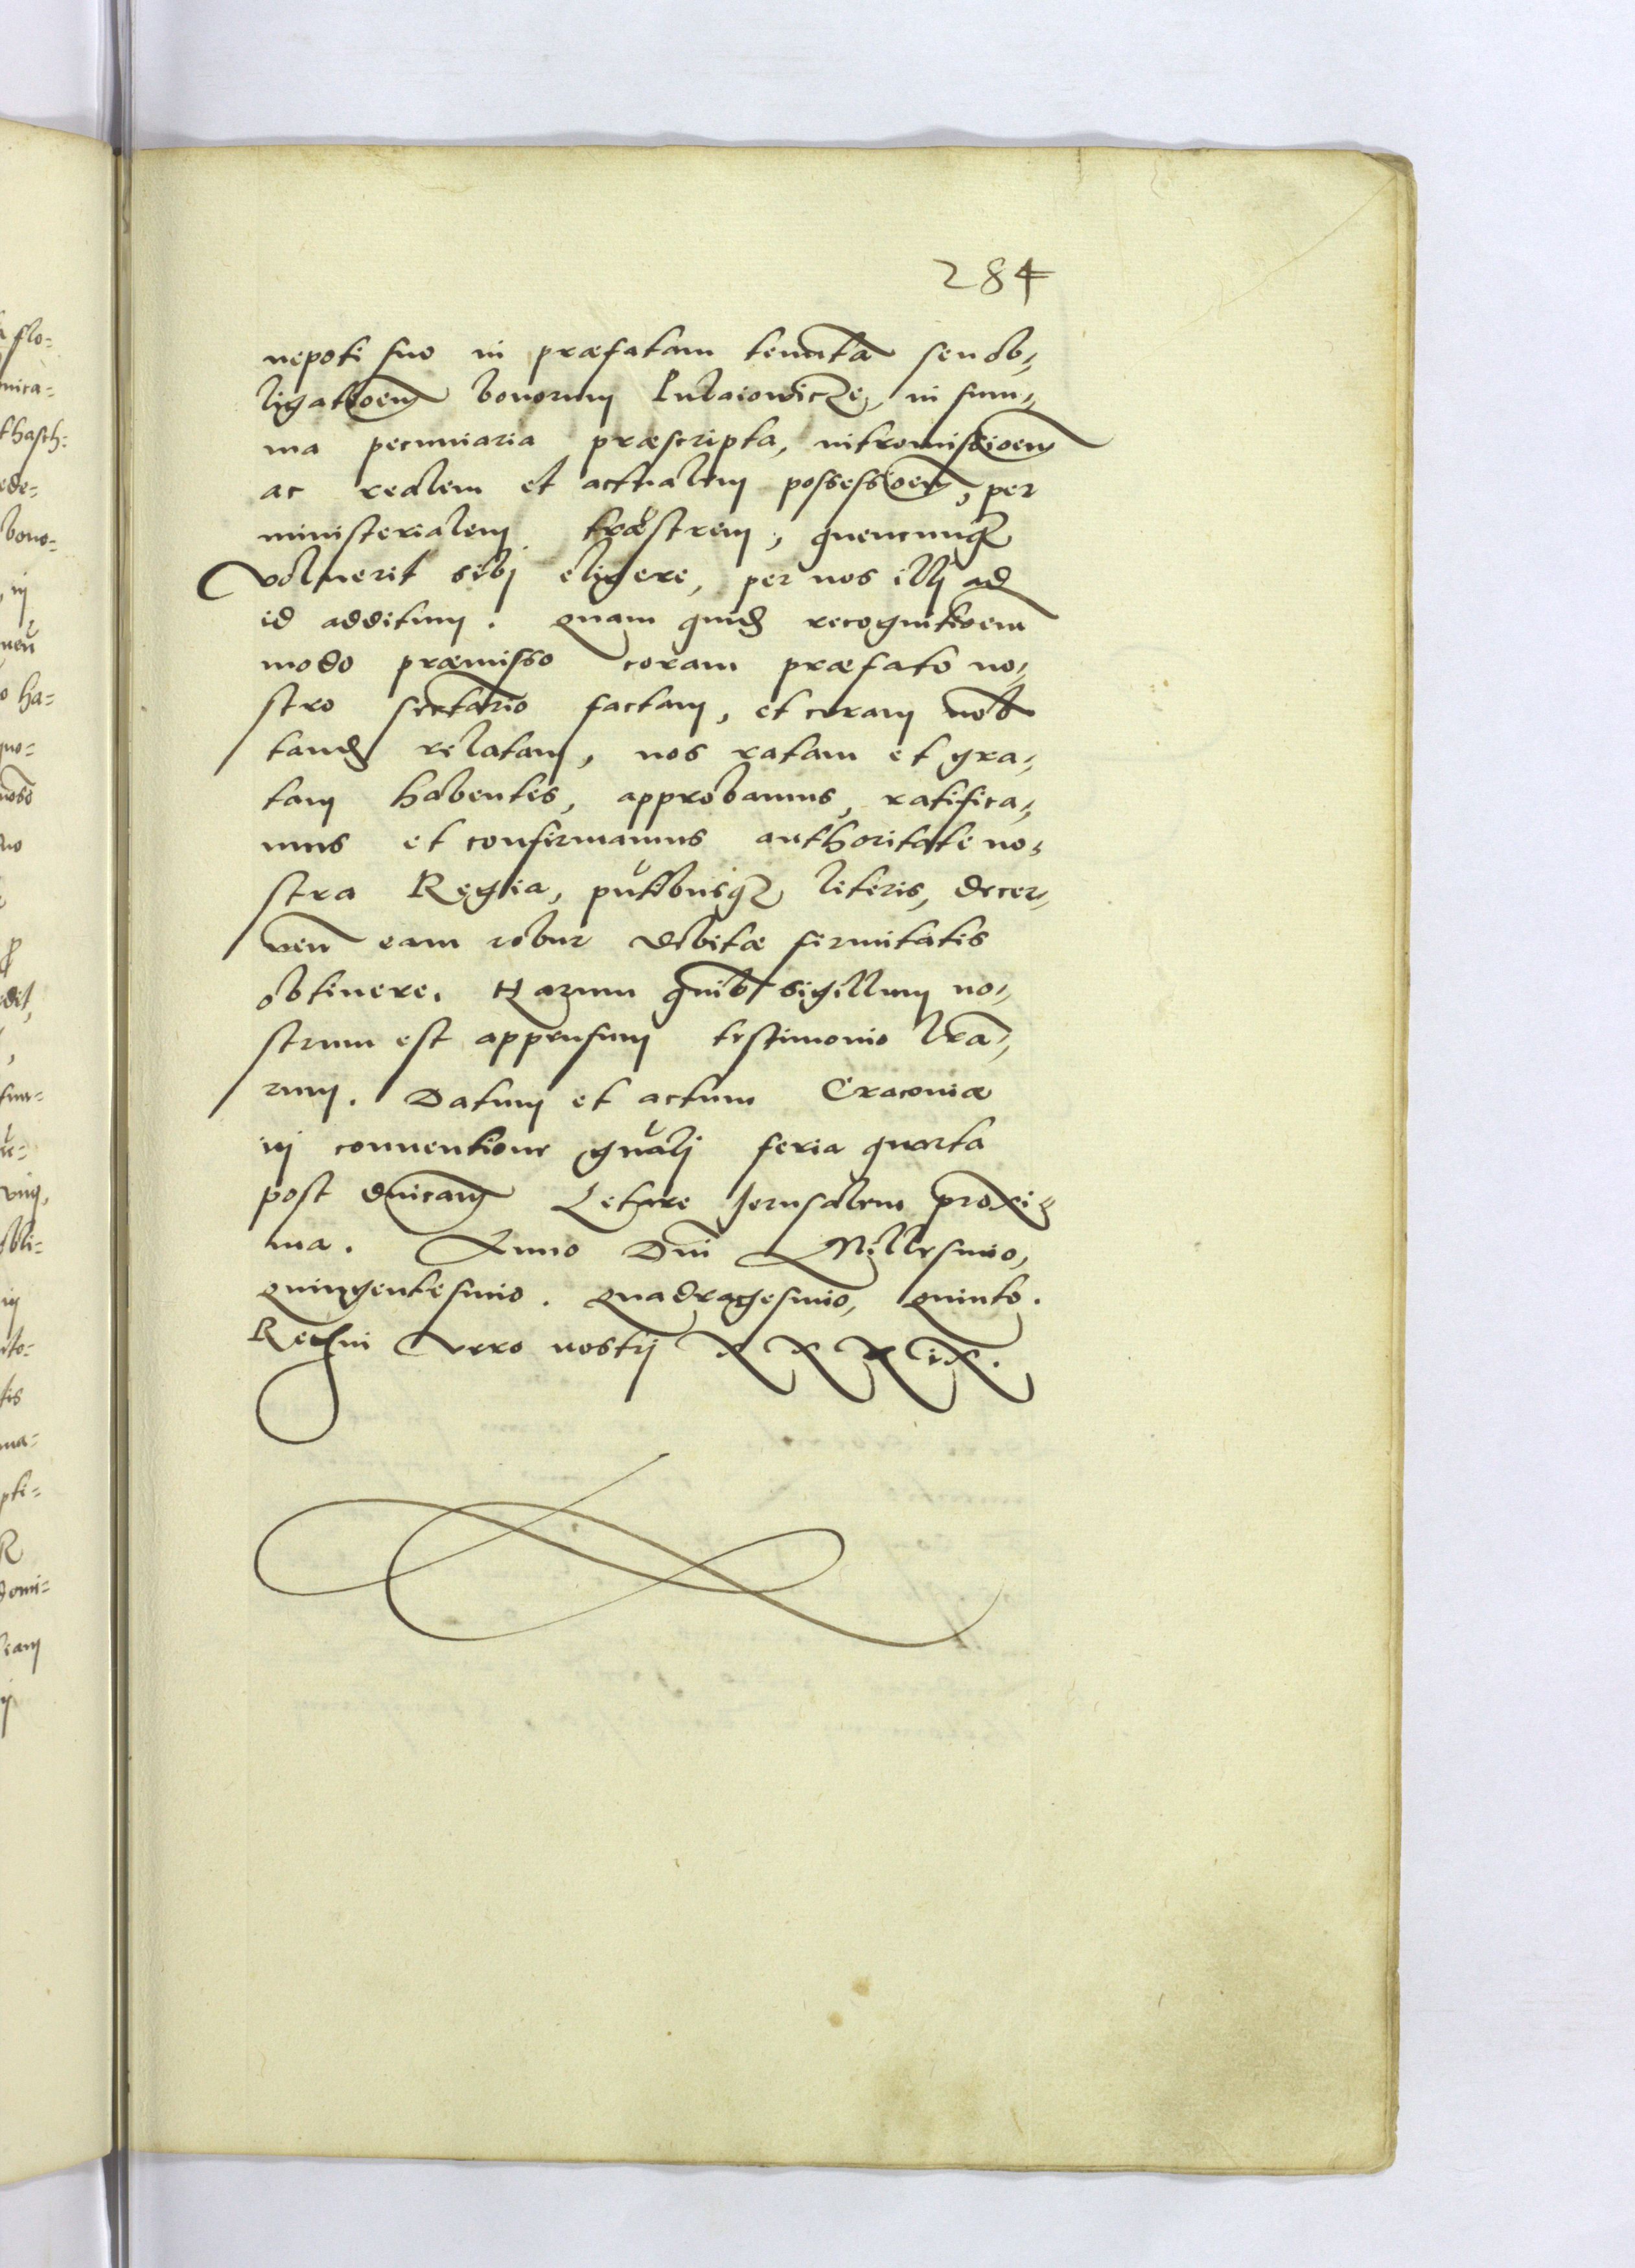 284
nepoti suo in præfatam tenutã seu ob-
ligatioem̃ bonorum Lulaiowicze, in sum-
ma pecuniaria præscripta, intromissioem̃
ac realem et actualem possessioem̃, per
ministerialem træstrem, quencunq3
voluerit sibj eligere, per nos illj ad
id additum. Quam quid̃ recognitioem̃
modo præmisso coram præfato no-
stro secretario factam, et coram nob̃
tand̃ relatam, nos ratam et gra-
tam habentes, approbamus, ratifica-
mus et confirmamus authoritate no-
stra Regia, pñtibusq3 literis, decer-
nen̄ eam robur debitæ firmitatis
obtinere. Harum quib9 sigillum no-
strum est appensum testimonio lrã-
rum. Datum et actum Cracoviæ
in conventione gñalj feria quarta
post dñicam̃ Letare Jerusalem proxi-
ma. Anno Dñi Millesimo,
quingentesimo. Quadragesimo, Quinto.
Regni vero nostrj XXXIX.
flo-
nica-
thasch:
ede-
bono-
in
ha-
quo-
bli-
tis
ma-
pti-
R
domi-